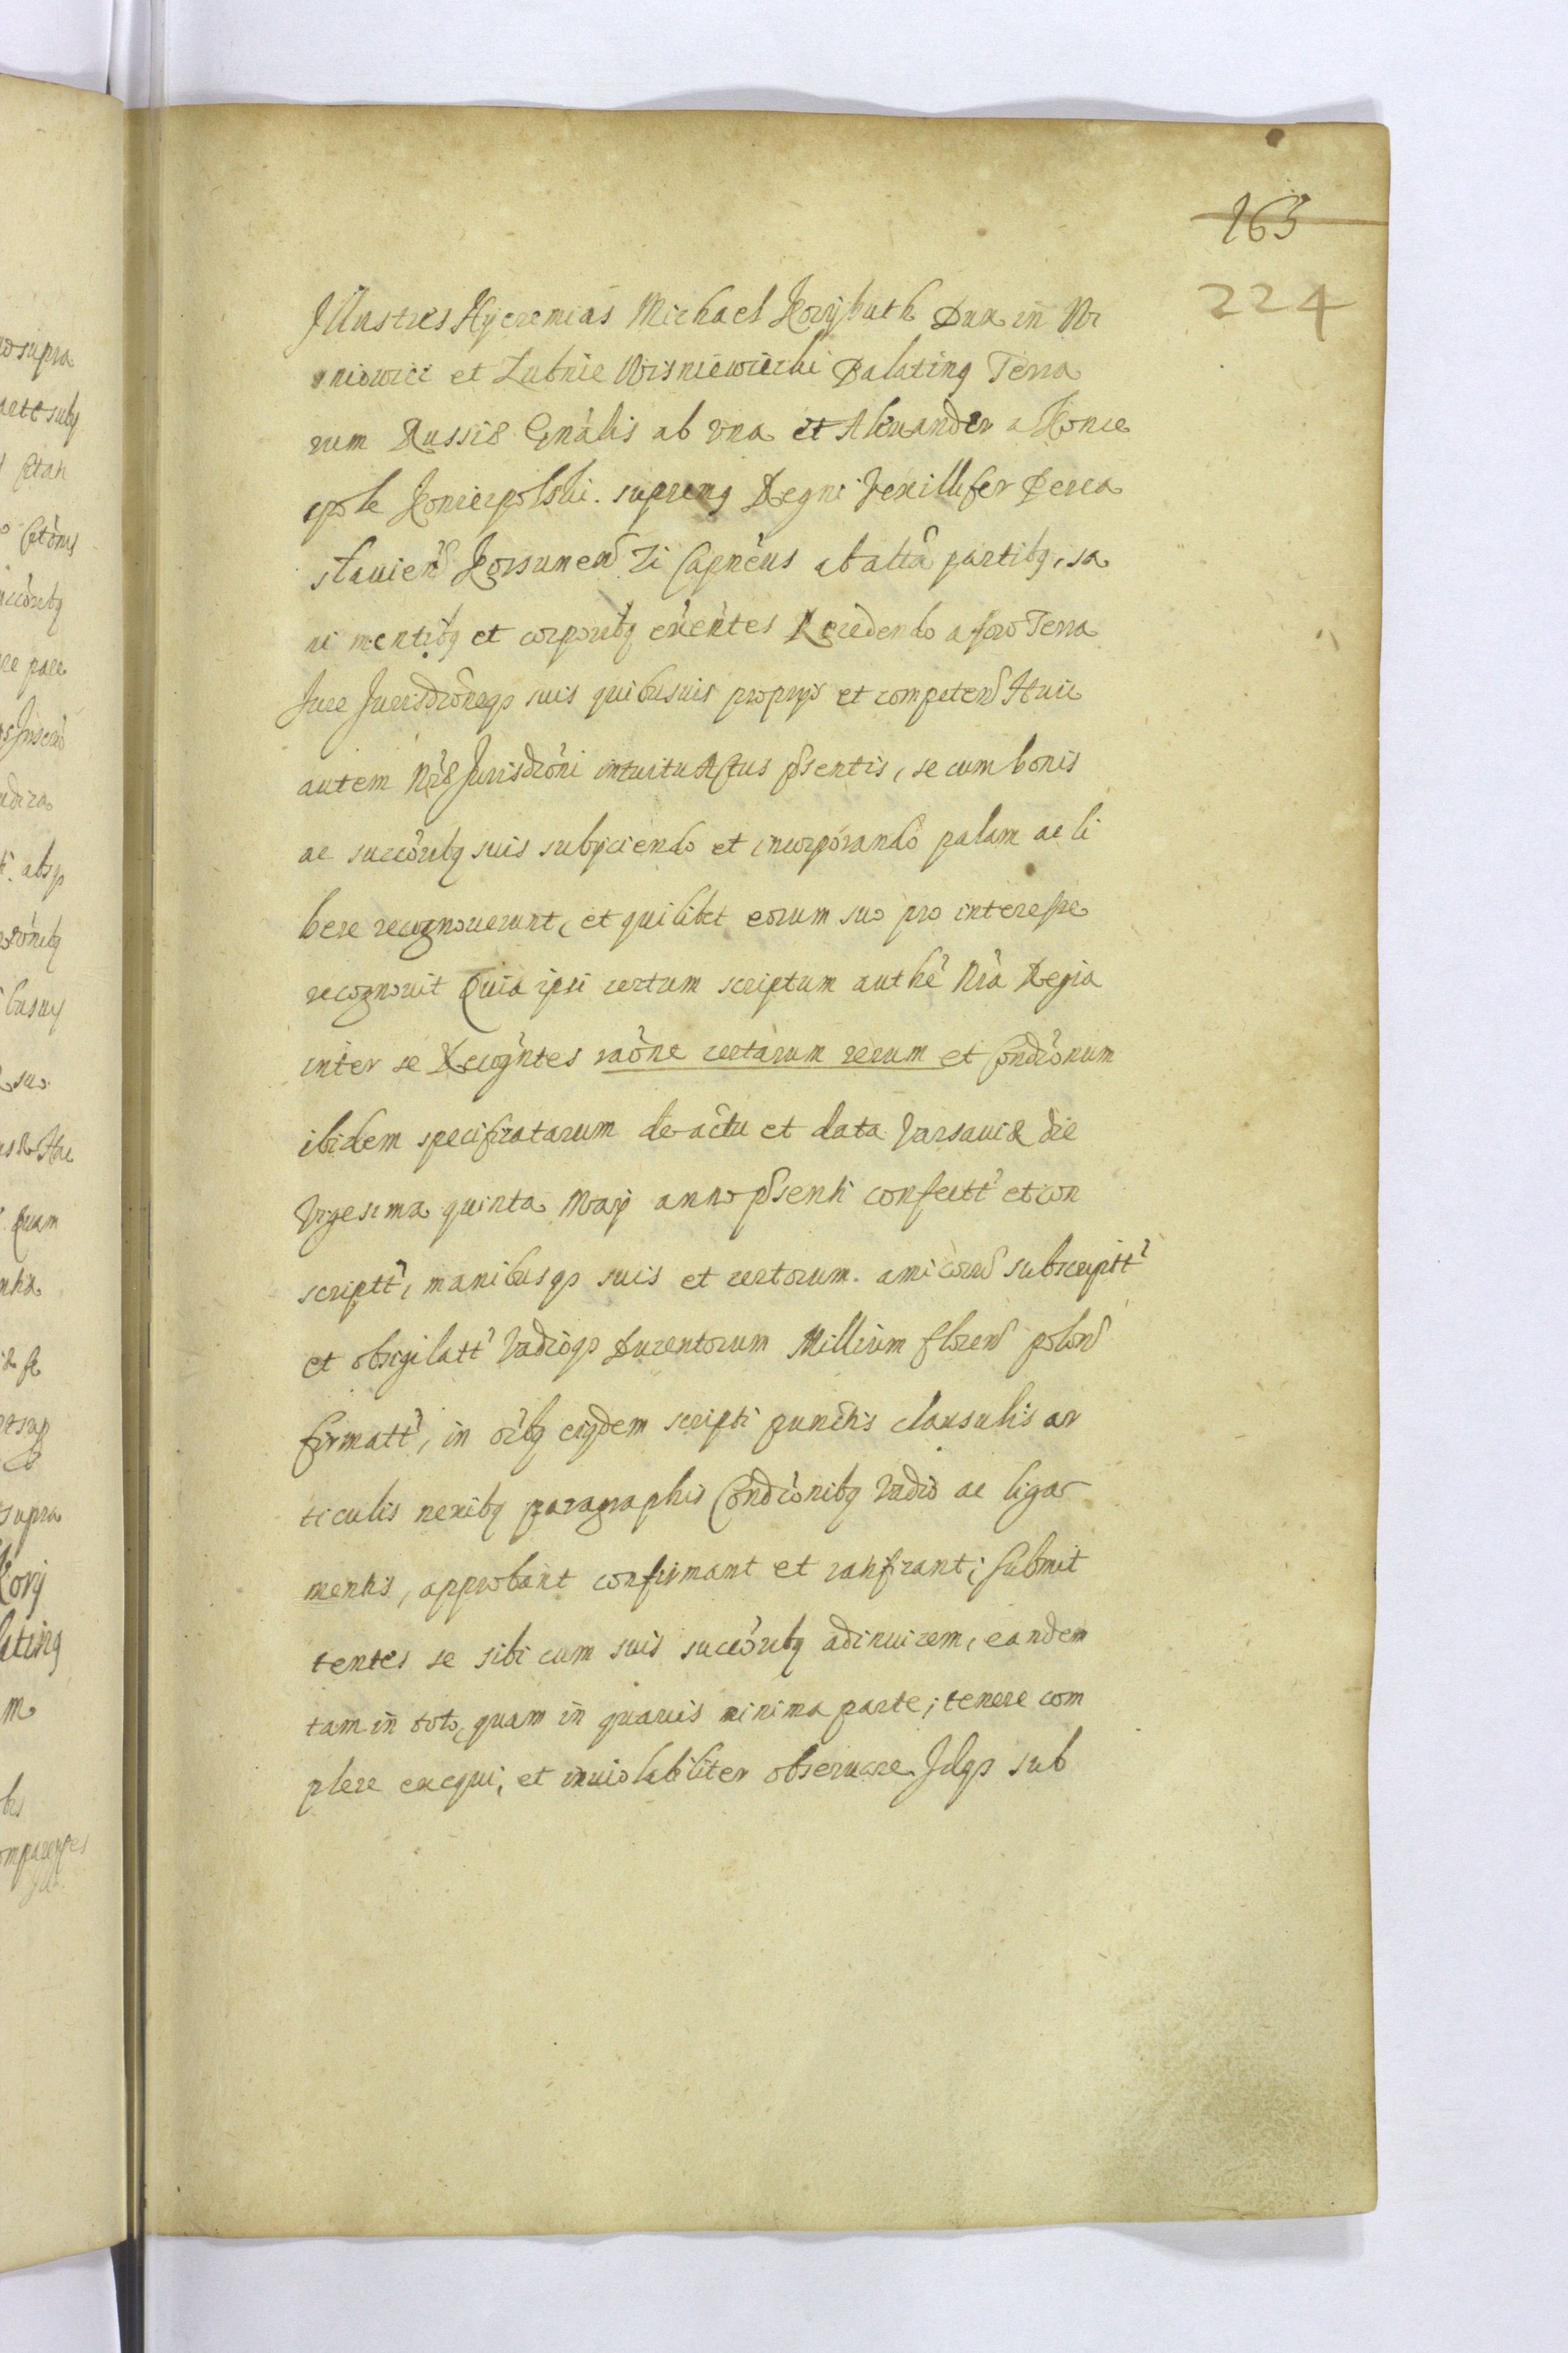 163
224
Illustres Hyeremias Michael Korijbuth Dux in Wi
sniowici et Lubnie Wisniewiecki Palatinꝯ Terra
rum Russiæ Gnãlis ab vna et Alexander a Konie
cpole Koniecpolski. supremꝯ Regni Vexillifer Perea
slauien̄ Korsunen̄ Zi Capnēus ab altā partibꝫ, sa
ni mentibꝫ et corporibꝫ exẽntes Recedendo a foro Terra
Jure Jurisdrõneqꝫ suis quibusuis proprijs et competen̄ Huic
autem Nr̃æ Jurisdrõni intuitu Actus pñsentis, se cum bonis
ac succõribꝫ suis subijciendo et incorporando palam ac li
bere recognouerunt, et quilibet eorum suo pro interesse
recognouit Quia ipsi certum scriptum authẽ Nrã Regia
inter se Recogñtes raõne certarum rerum et Condiõnum
ibidem specificatarum de actu et data Varsauiæ die
Vigesima quinta Maij anno pñsenti confectt̃ et con
scriptt̃, manibusqꝫ suis et certorum. amicorū subscriptt̃
et obsigilatt̃ Vadioqꝫ Ducentorum Millium floren̄ polon̄
firmatt̃, in oĩbꝫ eiꝯdem scripti punctis clausulis ar
ticulis nexibꝫ paragraphis Condiõnibꝫ Vadio ac liga
mentis, approbant confirmant et ratificant; Submit
tentes se sibi cum suis succõribꝫ adinuicem, eandem
tam in toto, quam in quauis minima parte; tenere com
plere exequi, et inuiolabiliter obseruare. Idqꝫ sub